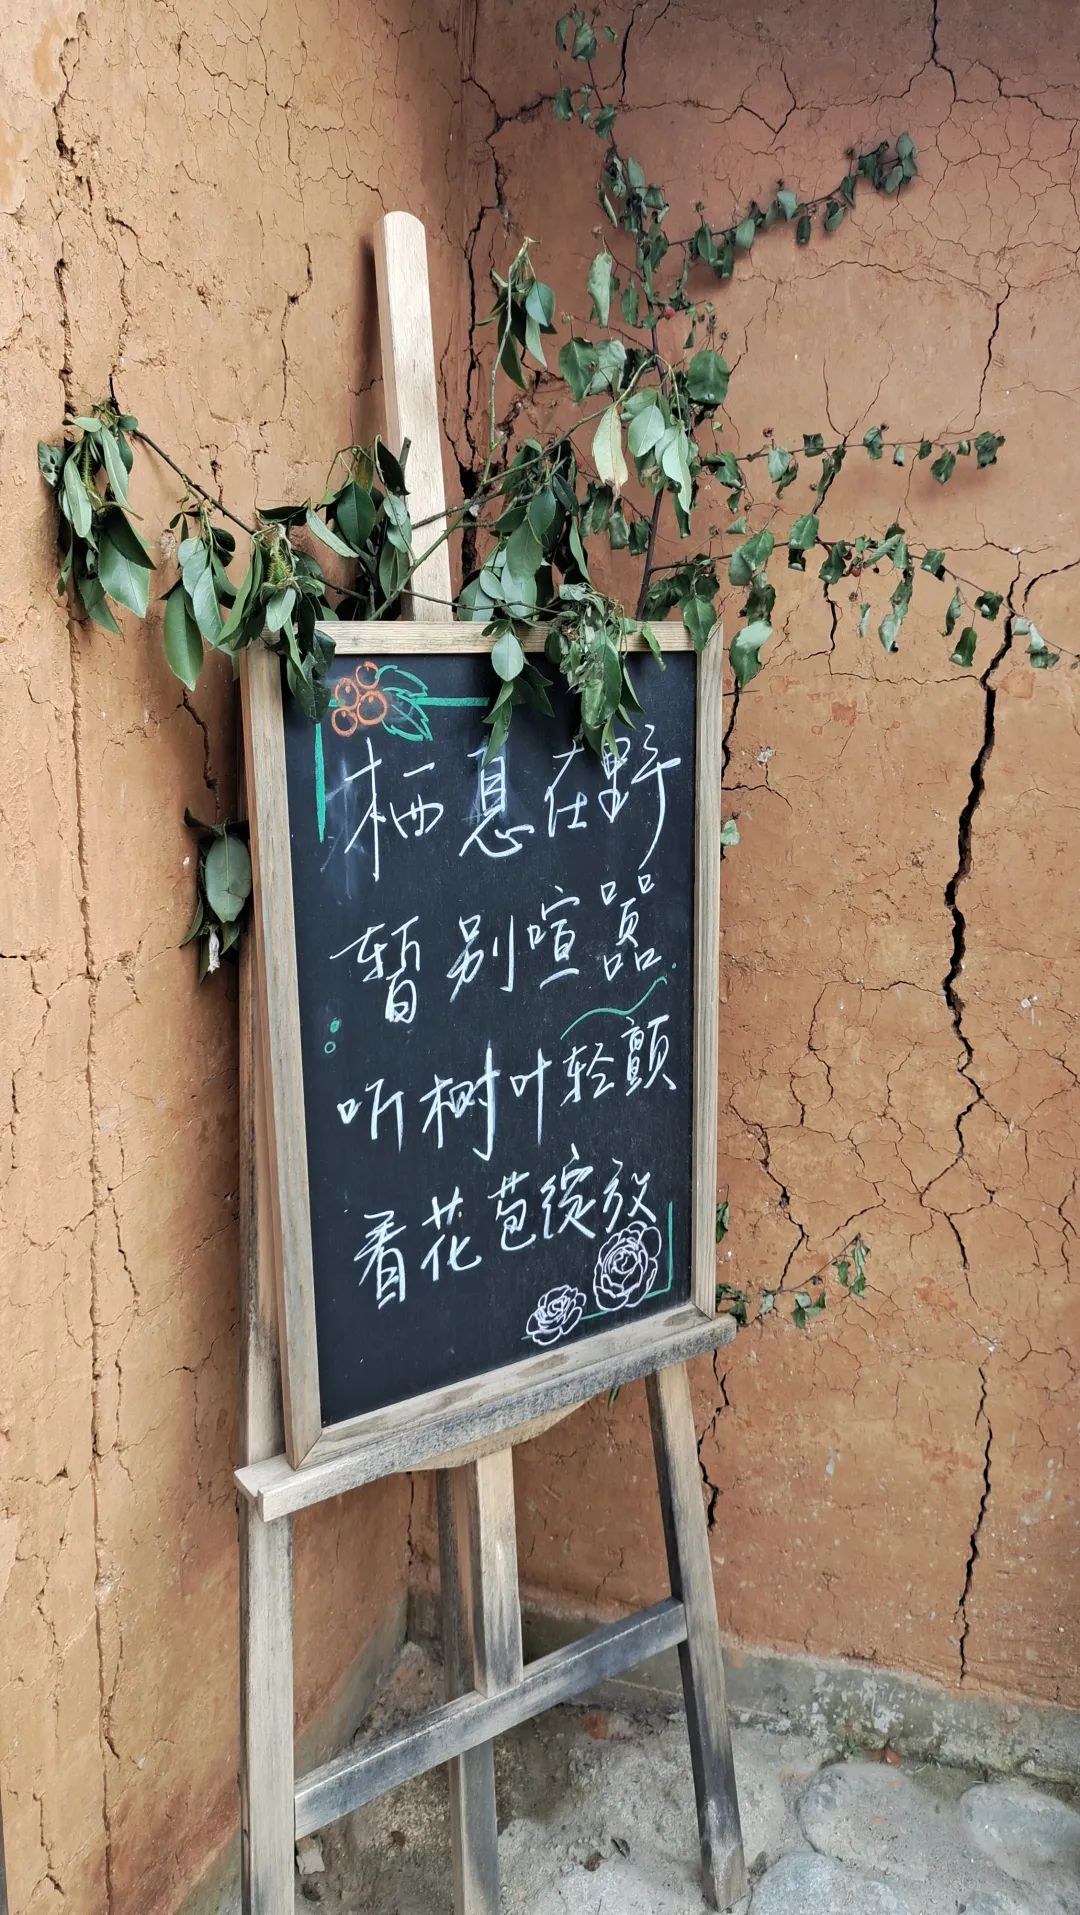 栖息在野
暂别喧嚣
听树叶轻颤
看花苞绽放